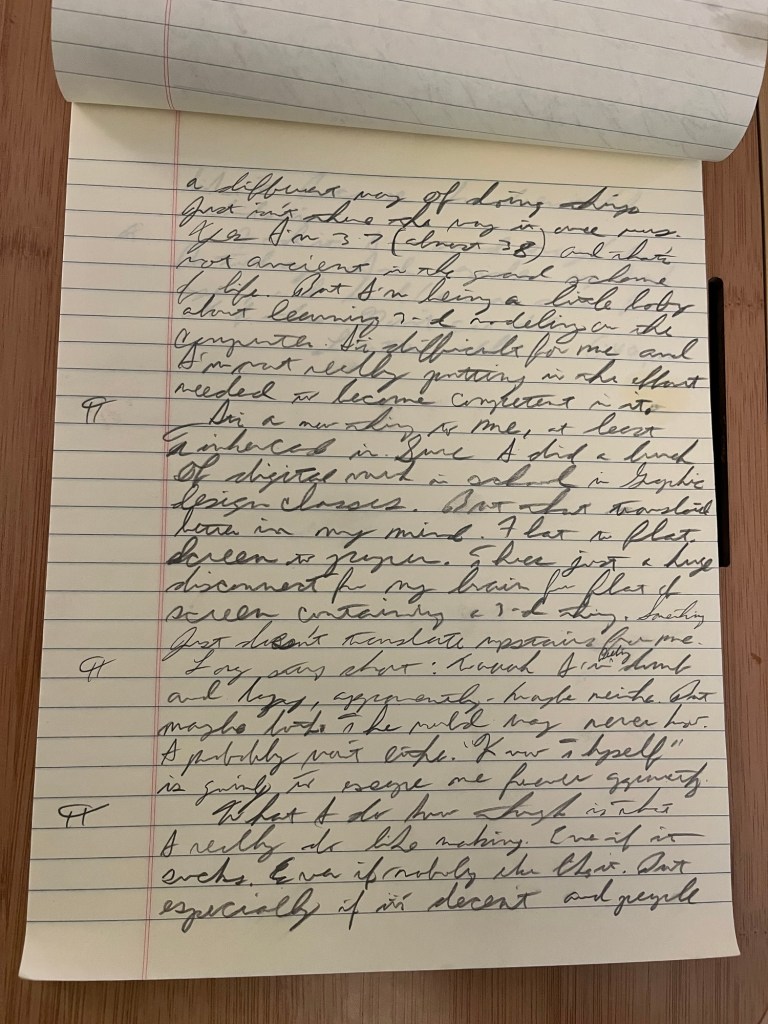 a different way of doing things
just isn't there the way it once was.
Yes I'm 37 (almost 38) and that's
not ancient in the grand scheme
of life. But I'm being a little baby
about learning 3-d modeling on the
computer. It's difficult for me and
I'm not really putting in the effort
needed to become competent in it.
¶ It's a new thing to me, at least
in. Sure I did a bunch
of digital work in school in Graphic
design classes. But that translated
better in my mind. Flat to flat.
Screen to paper. There's just a huge
disconnect for my brain for flat of
screen containing a 3-d thing. Something
Just doesn't translate upstairs for me.
¶ Long story short: I'm really dumb
and lazy, apparently. Maybe neither. But
maybe both. The world may never know.
I probably won't either. "Know Thyself"
is going to escape me forever apparently.
¶ What I do know though is that
I really do like making. Even if it
sucks. Even if nobody else likes it. But
especially if it's decent and people